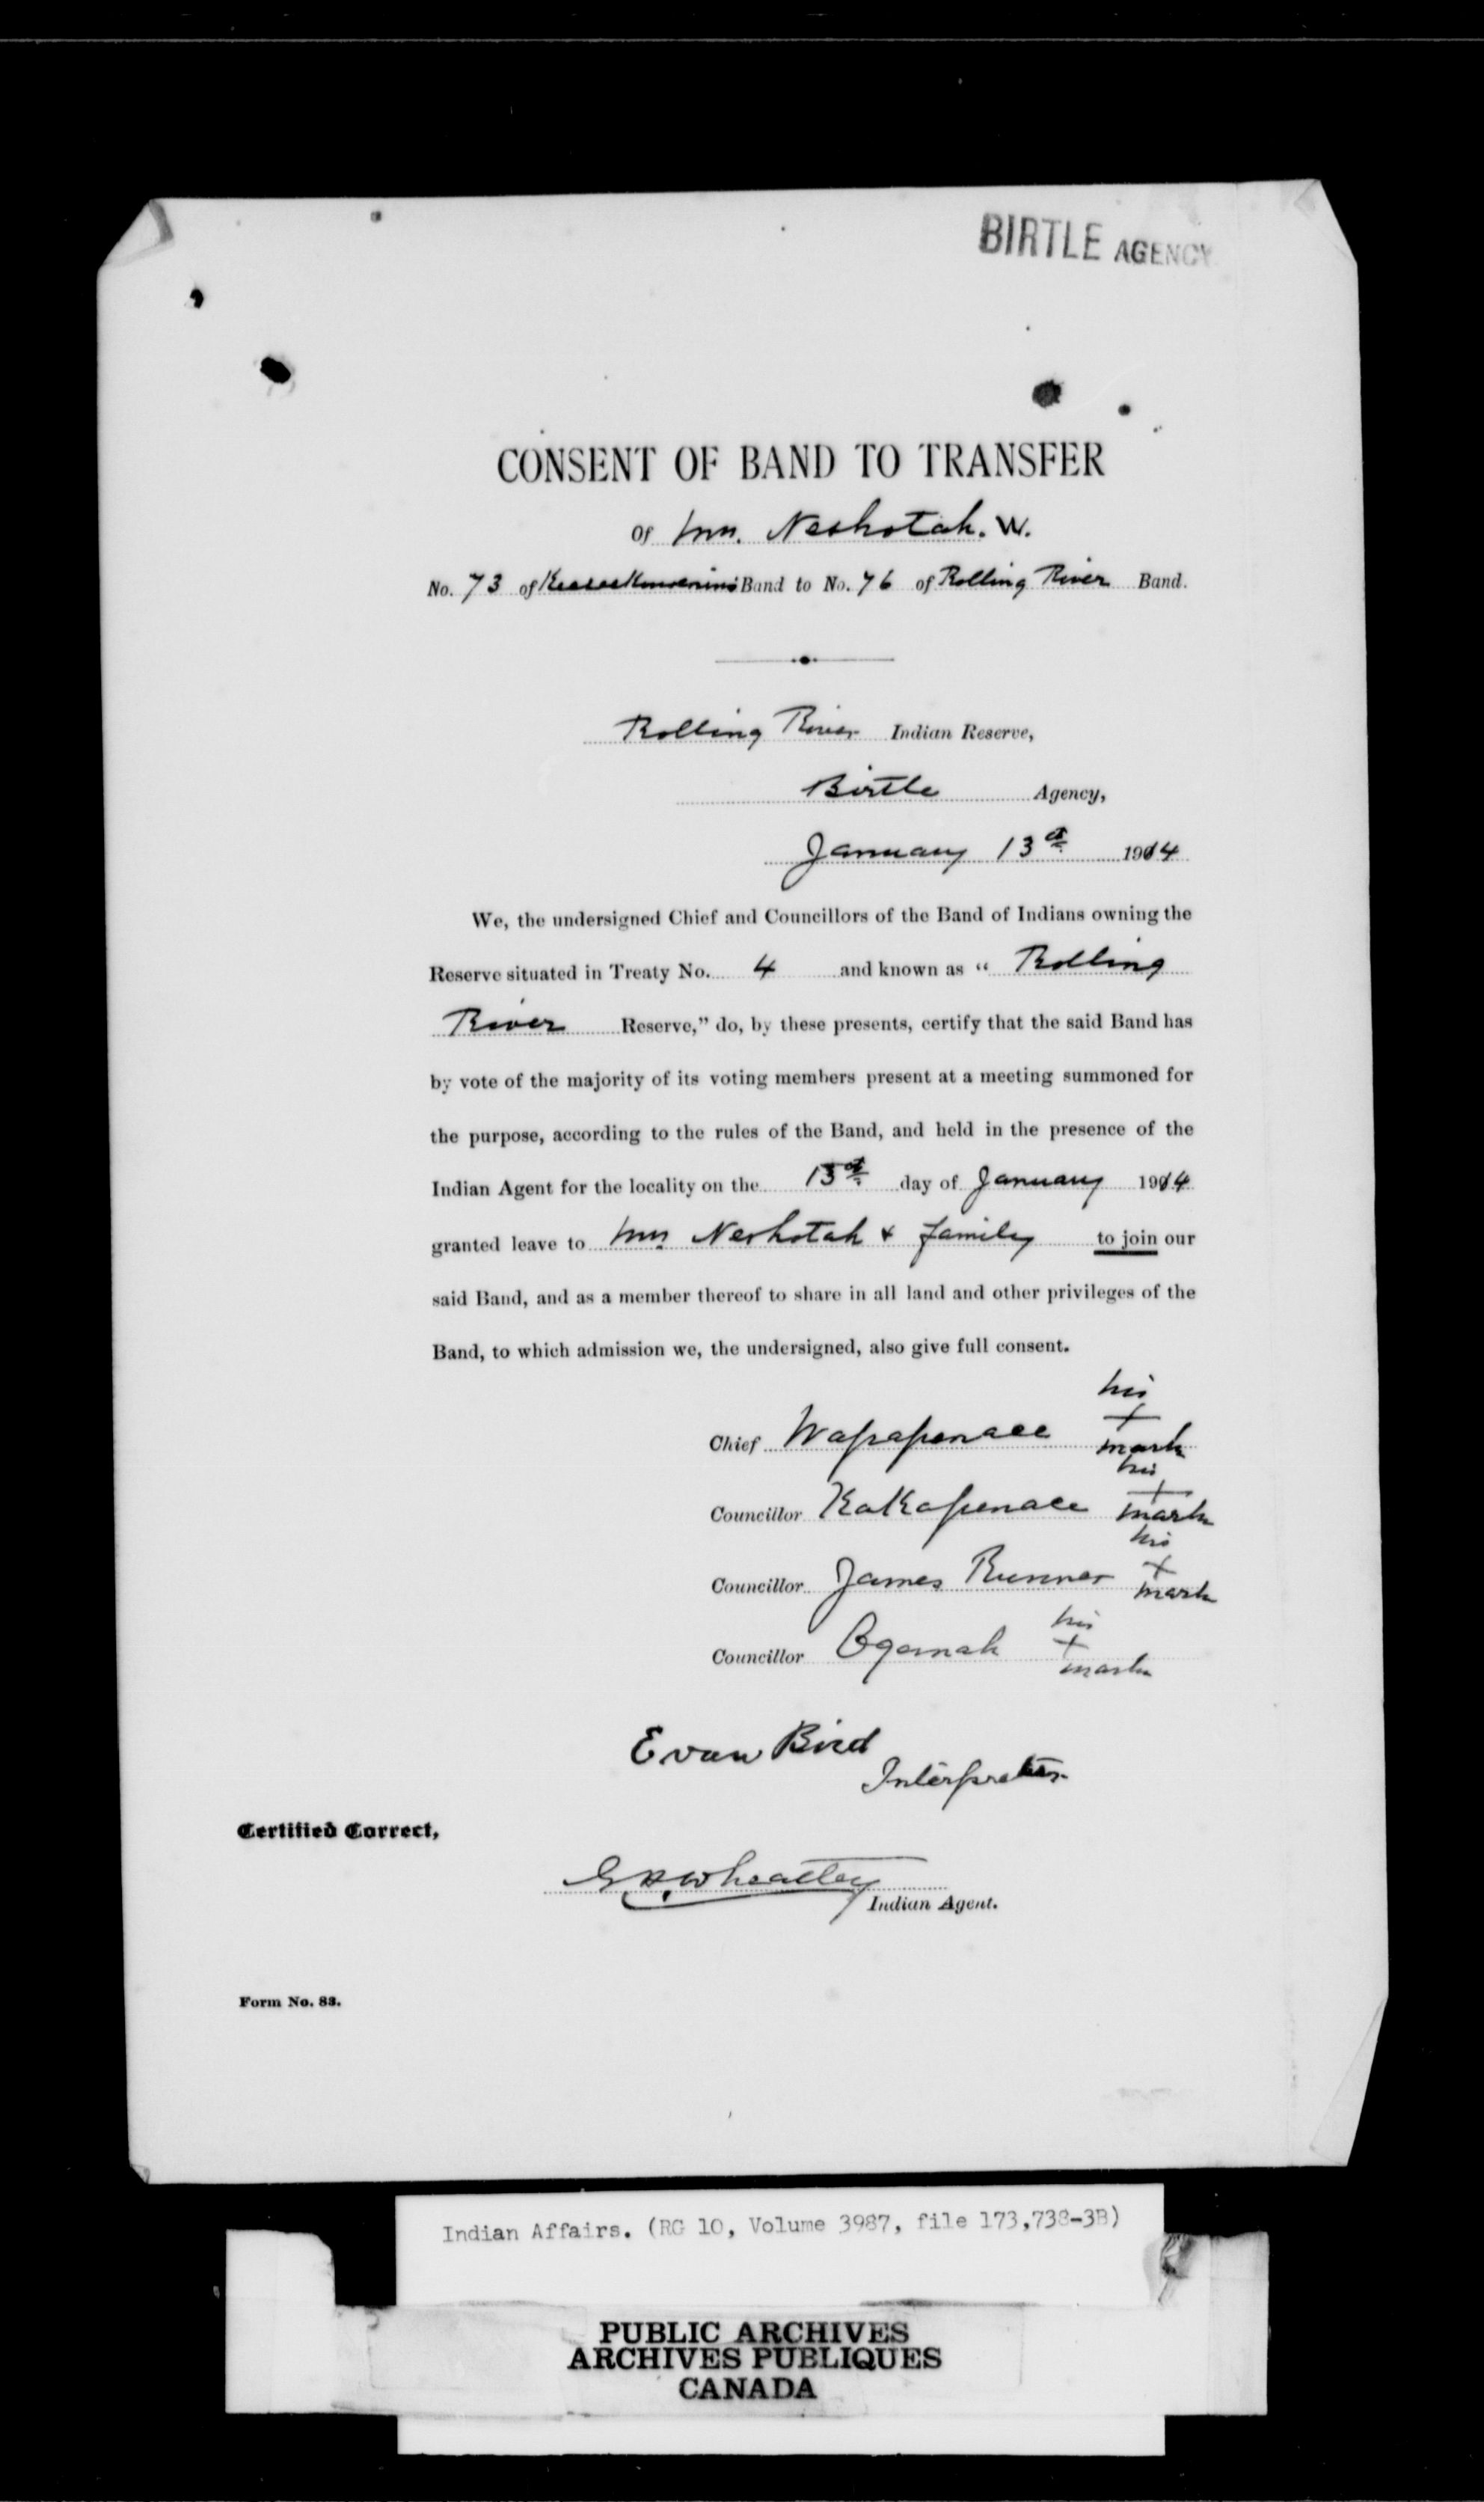 BIRTLE AGENCY
CONSENT OF BAND TO TRANSFER
Of Mrs. Neshotah. W.
No. 73 of Keeseekoowenins Band to No. 76 of Rolling River Band.
Rolling River Indian Reserve,
Birtle Agency,
January 13th 1914
We, the undersigned Chief and Councillors of the Band of Indians owning the
Reserve situated in Treaty No. 4 and known as “ Rolling
River Reserve,” do, by these presents, certify that the said Band has
by vote of the majority of its voting members present at a meeting summoned for
the purpose, according to the rules of the Band, and held in the presence of the
Indian Agent for the locality on the 13th day of January 1914
granted leave to Mrs Neshotah & family to join our
said Band, and as a member thereof to share in all land and other privileges of the
Band, to which admission we, the undersigned, also give full consent.
his
Chief Wapapenace x
mark
his
Councillor KaKapenace x
mark
his
Councillor James Runner x
mark
his
Councillor Ogemah x
mark
Evan Bird
Interpreter
Certified Correct,
G H Wheatley
Indian Agent.
Form No. 83.
Indian Affairs. (RG 10, Volume 3987, file 173,738-3B)
PUBLIC ARCHIVES
ARCHIVES PUBLIQUES
CANADA